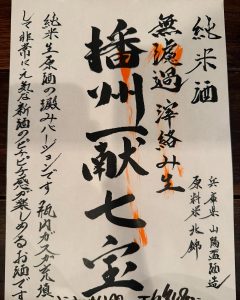 純米酒
無濾過 滓絡み生
播州一献 七宝
兵庫県 山陽盃酒造
原料米 北錦
純米生原酒の澱みバージョンです 瓶内ガスが充填
して非常に元気な新酒のピチピチ感が楽しめるお酒です